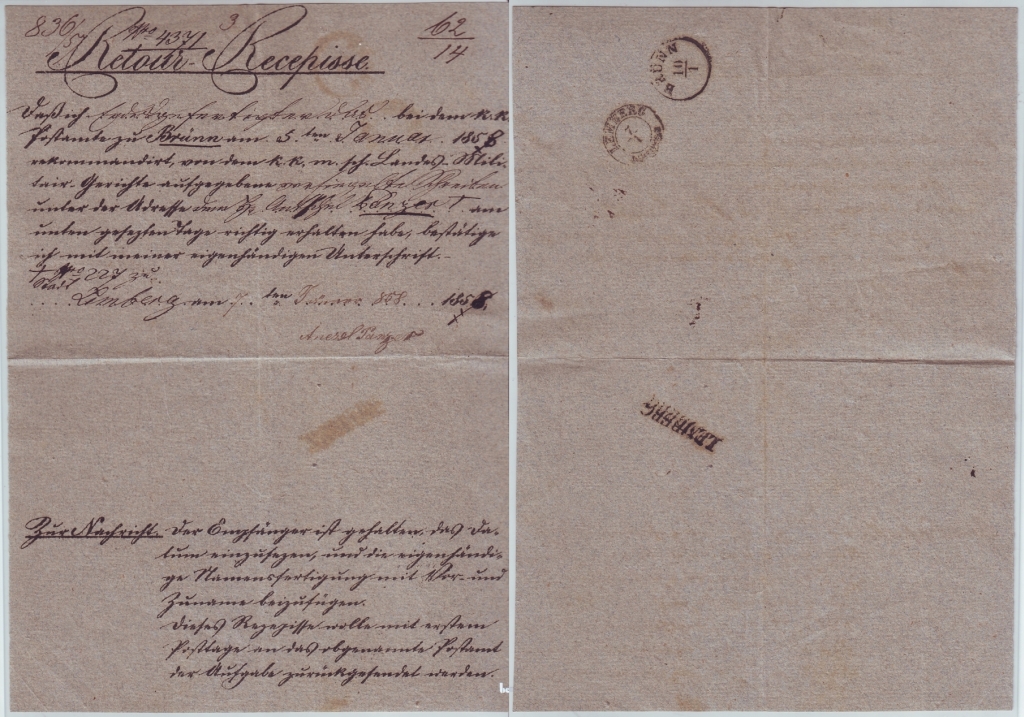 836/57 Nro 4371 3 62/14
Retour-Recepisse.
Daß ich Endesgefertigter das bei dem k. k.
Postamte zu Brünn am 5. ten Januar 1858
rekommandirt, von dem k. k. m. sch. Landes-Mili-
tair-Gerichte aufgegebene Schreiben
unter der Adresse am
unten gesezten Tage richtig erhalten habe, bestätige
ich mit meiner eigenhändigen Unterschrift.-
† Nro 227 zu
Stadt
Lemberg am 7. ten Januar 858. 1858.
Zur Nachricht. Der Empfänger ist gehalten das Da-
tum einzusezen, und die eigenhändi-
ge Namensfertigung mit Vor- und
Zuname beizufügen.
Dieses Rezepisse wolle mit erstem
Posttage an das obgenannte Postamt
der Aufgabe zurückgesendet werden.
BRÜNN
10/1
LEMBERG
7/1
LEMBERG